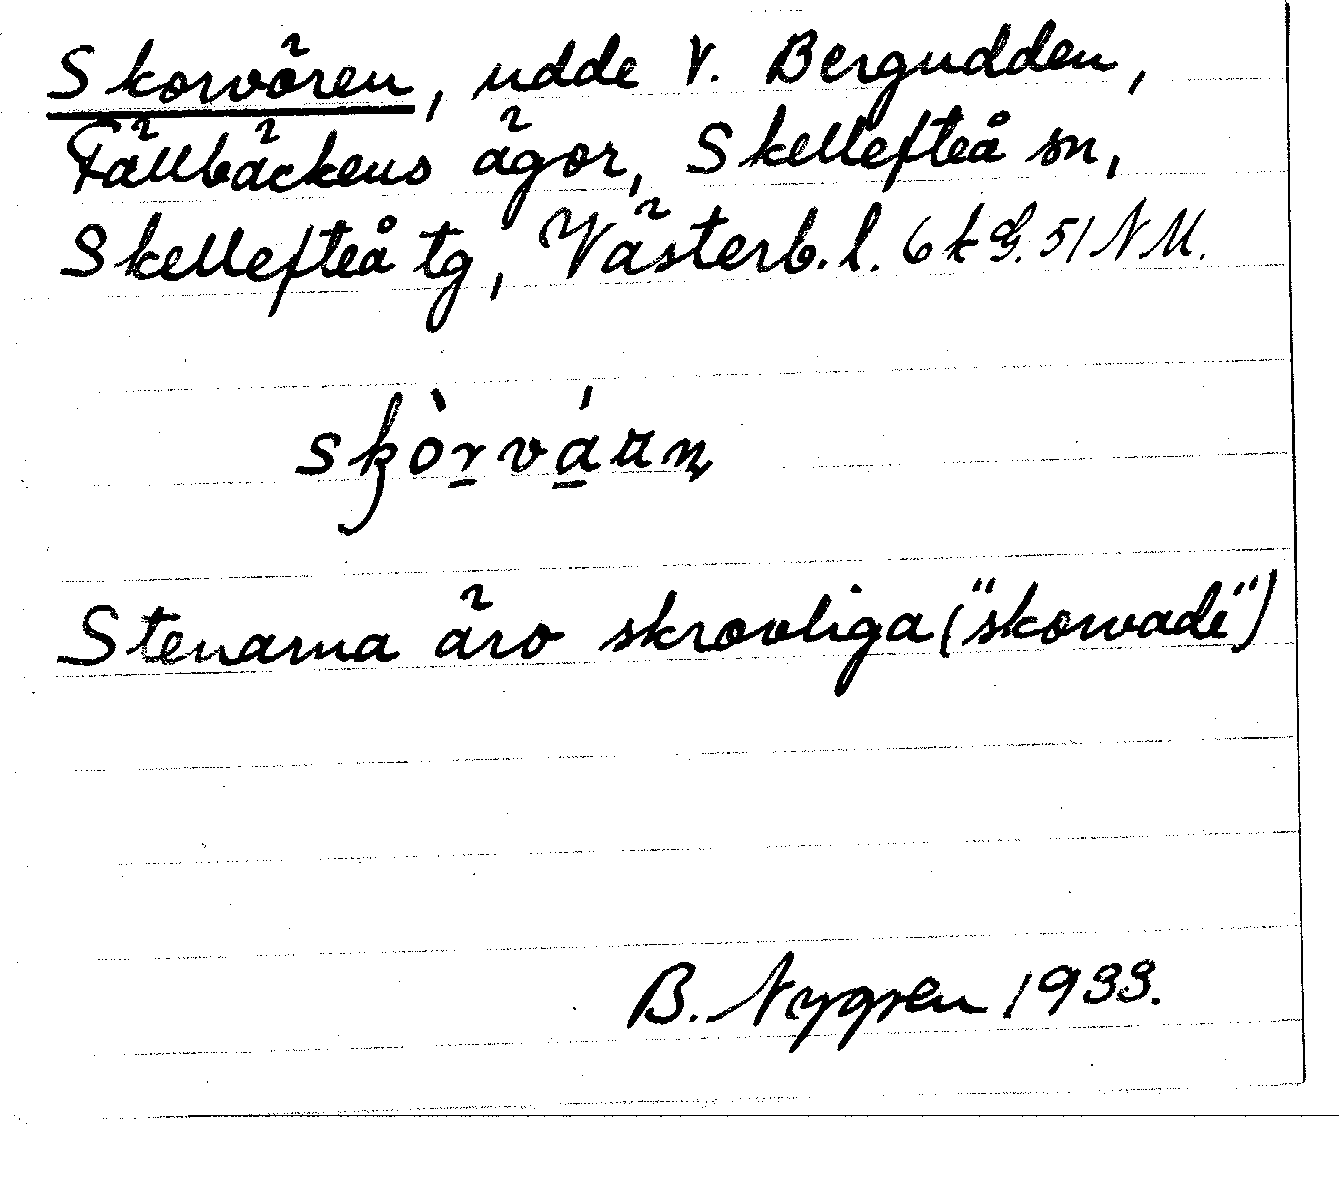 Skorvören, udde V. Bergudden,
Fällbäckens ägor, Skellefteå sn,
Skellefteå tg, Västerb. l. 6 k G. 51 N M.
skòrvárn
Stenarna äro skrovliga ("skorvade")
B. Nygren 1933.